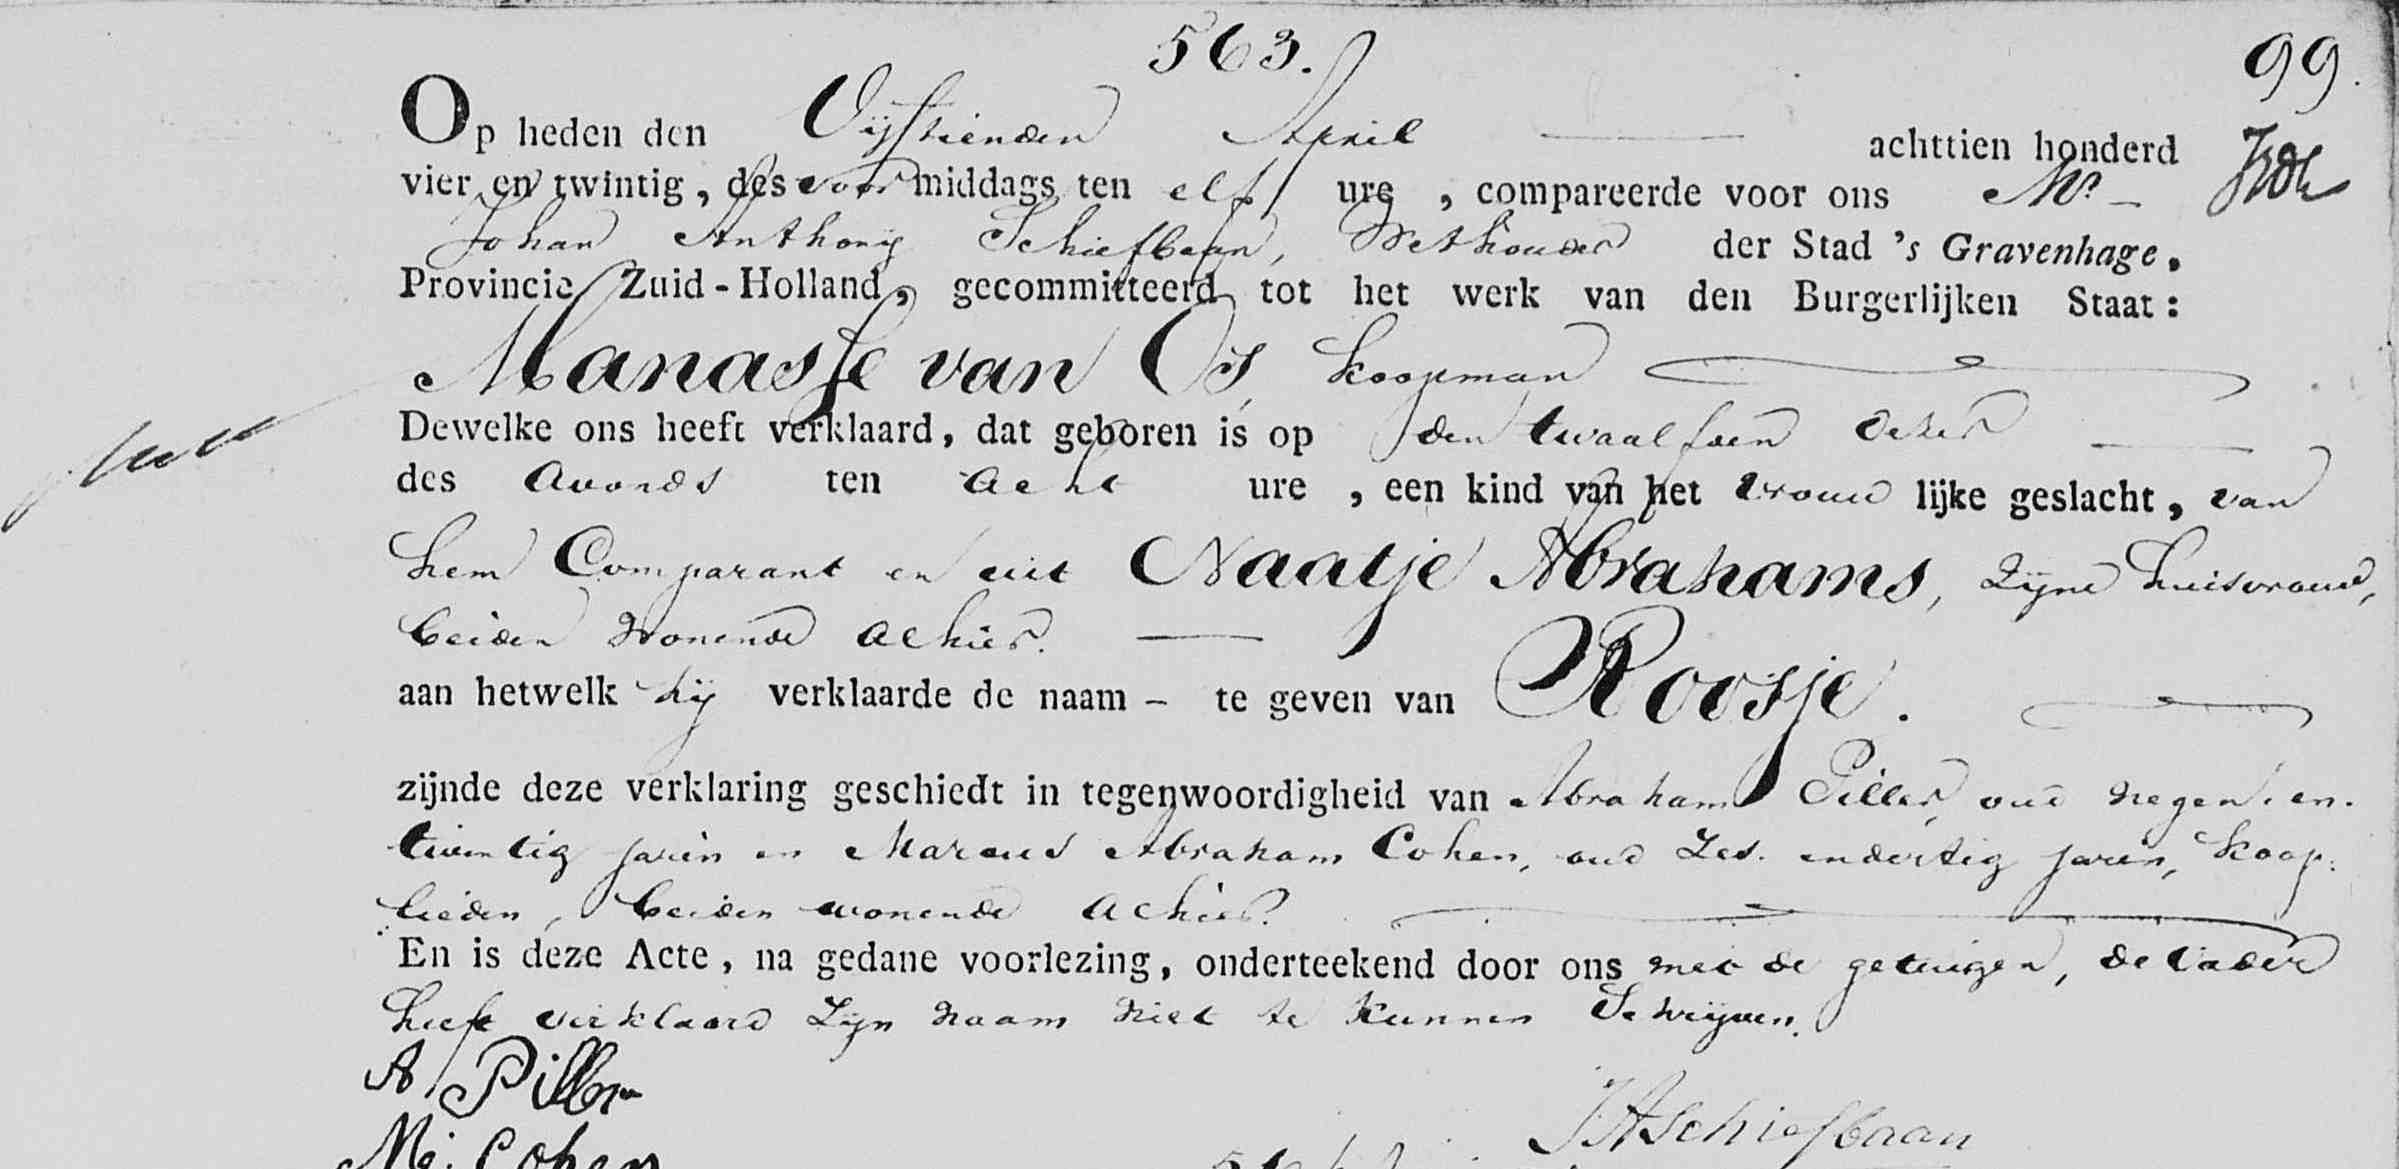 563.
99.
Op heden den Vijftienden April achttien honderd
vier en twintig, des voor middags ten elf ure , compareerde voor ons Mr.
Johan Anthonij Schiefbaan, Wethouder der Stad 's Gravenhage,
Provincie Zuid-Holland, gecommitteerd tot het werk van den Burgerlijken Staat:
Manasse van Os, Koopman
Dewelke ons heeft verklaard, dat geboren is op den twaalfden dezer
des avonds ten acht ure , een kind van het vrouw lijke geslacht, van
hem Comparant en uit Naatje Abrahams, zijne huisvrouw,
beiden wonende alhier.
aan hetwelk hij verklaarde de naam - te geven van Roosje.
zijnde deze verklaring geschiedt in tegenwoordigheid van Abraham Piller, oud negen en
twintig jaren en Marcus Abraham Cohen, oud Zes endertig jaren, Koop
lieden, beiden wonende alhier.
En is deze Acte, na gedane voorlezing, onderteekend door ons met de getuigen, de vader
heeft verklaard Zijn naam niet te kunnen Schrijven.
A Piller
JASchiefbaan
M: Cohen